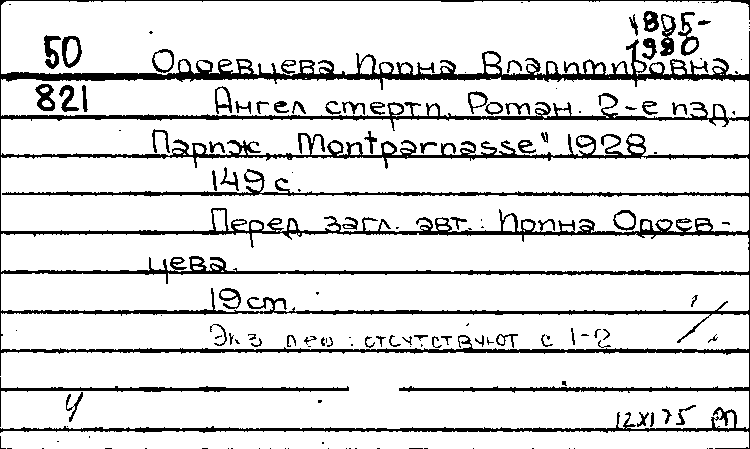 1895-
1990
50 Одоевцева, Ирина Владимировна.
821 Ангел смерти. Роман. 2-е изд.
Париж, „Montparnasse“, 1928.
149 с.
Перед загл. авт.: Ирина Одоев-
цева.
19 cm.
Экз деф : отсутствуют с 1-2
Ч
12XI75 РП